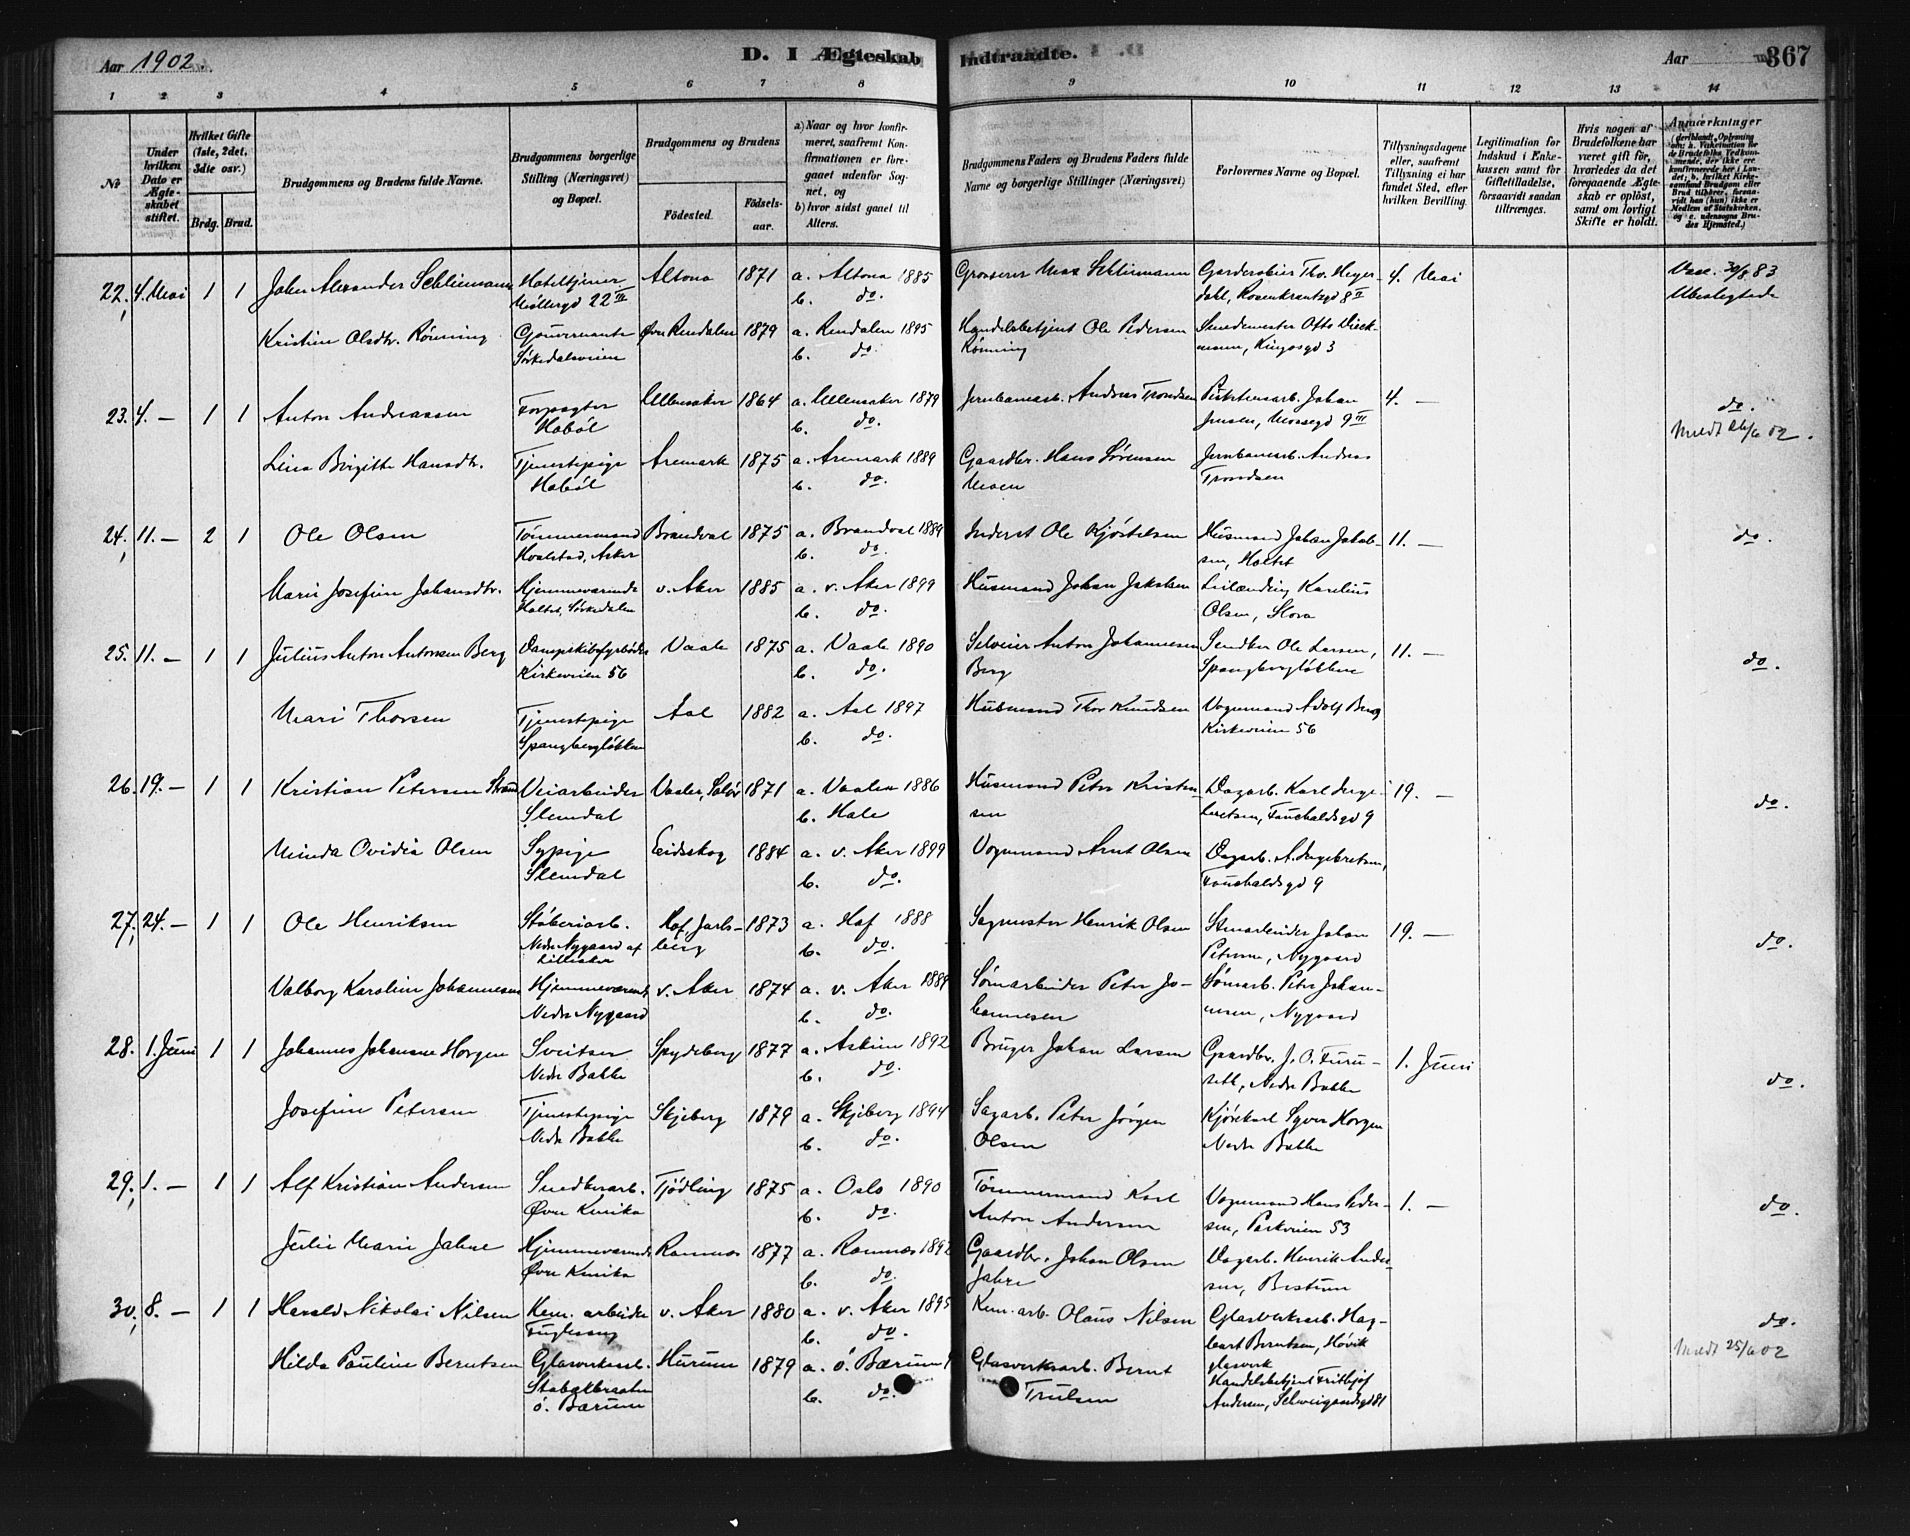 Aar 1902.
D. I Ægteskab Indtraadte.
Aar
367
1 2 3 4 5 6 7 8 9 10 11 12 13 14
No
Under hvilken Dato er Ægteskabet stiftet.
Hvilket Gifte (1ste, 2det, 3die osv.)
Brdg. Brud.
Brudgommens og Brudens fulde Navne.
Brudgommens borgerlige Stilling (Næringsvei) og Bopæl.
Brudgommens og Brudens
Födested.
Födselsaar.
a) Naar og hvor konfirmeret, saafremt Konfirmationen er foregaaet udenfor Sognet, og
b) hvor sidst gaaet til Alters.
Brudgommens Faders og Brudens Faders fulde Navne og borgerlige Stillinger (Næringsvei)
Forlovernes Navne og Bopæl.
Tillysningsdagene eller, saafremt Tillysning ei har fundet Sted, efter hvilken Bevilling.
Legitimation for Indskud i Enkekassen samt for Giftetilladelse, forsaavidt saadan tiltrænges.
Hvis nogen af Brudefolkene har været gift før, hvorledes da det foregaaende Ægteskab er opløst, samt om lovligt Skifte er holdt.
Anmærkninger
22, 4. Mai 1 1 John Alexander Schliemann Hoteltjener Møllergd 22 III Altona 1871 a. Altona 1885 b. do. Grosserer Max Schliemann Garderobier Thv. Heyerdahl, Rosenkrantzgd 8 II 4. Mai Vacc. 30/8 83 Ubeslægtede
Kristine Olsdtr. Rönning Gouvernante Sörkedalsveien Øvre Rendalen 1879 a. Rendalen 1895 b. do. Handelsbetjent Ole Pedersen Rönning Smedemester Otto Dieckmann, Kingosgd 3
23. 4. — 1 1 Anton Andreassen Forpagter Haböl Ullensaker 1864 a. Ullensaker 1879 b. do. Jernbanearb. Andreas Trondsen Johan Jensen, Mossegd 9 III 4. — do. Meldt 26/6 02.
Lina Birgitte Hansdtr. Tjenestepige Haböl Aremark 1875 a. Aremark 1889 b. do. Gaardbr. Hans Sörensen Moen Jernbanearb. Andreas Trondsen
24, 11. — 2 1 Ole Olsen Tömmermand Hvalstad, Asker Brandval 1875 a. Brandval 1889 b. do. Inderst Ole Kjöstelsen Husmand Johan Jakobsen, Holtet 11. — do.
Marie Josefine Johansdtr. Hjemmeværende Holtet, Sörkedalen v. Aker 1885 a. v. Aker 1899 b. do. Husmand Johan Jakobsen Leilænding Karelius Olsen, Slora
25. 11. — 1 1 Julius Anton Antonsen Berg Dampskibsfyrböder Kirkeveien 56 Vaale 1875 a. Vaale 1890 b. do. Selveier Anton Johannesen Berg Snedker Ole Larsen, Spangberglökken 11. — do.
Mari Thorsen Tjenestepige Spangberglökken Aal 1882 a. Aal 1897 b. do. Husmand Thor Knudsen Vognmand Adolf Berg Kirkeveien 56
26. 19. — 1 1 Kristian Petersen Strand Veiarbeider Slemdal Vaaler, Solör 1871 a. Vaaler 1886 b. Hole Husmand Peter Kristensen Dagarb. Karl Ingebretsen, Fauchaldsgd 9 19. — do.
Minda Ovidia Olsen Sypige Slemdal Eidskog 1884 a. v. Aker 1899 b. do. Vognmand Arnt Olsen Dagarb. A. Ingebretsen, Fauchaldsgd 9
27, 24. — 1 1 Ole Henriksen Stöberiarb. Nedre Nygaard af Lilleaker Hof, Jarlsberg 1873 a. Hof 1888 b. do. Sagmester Henrik Olsen Stenarbeider Johan Petersen, Nygaard 19. — do.
Valborg Karoline Johannesen Hjemmeværende Nedre Nygaard v. Aker 1874 a. v. Aker 1889 b. do. Sömarbeider Peter Johannesen Sömarb. Peter Johannesen, Nygaard
28. 1. Juni 1 1 Johannes Johansen Horgen Sveitser Nedre Bakke Spydeberg 1877 a. Askim 1892 b. do. Bruger Johan Larsen Gaardbr. J. O. Furuseth, Nedre Bakke 1. Juni do.
Josefine Petersen Tjenestepige Nedre Bakke Skjeberg 1879 a. Skjeberg 1894 b. do. Sagarb. Peter Jörgen Olsen Kjörekarl Syver Horgen Nedre Bakke
29, 1. — 1 1 Alf Kristian Andersen Snedkerarb. Øvre Tjödling 1875 a. Oslo 1890 b. do. Tömmermand Karl Anton Andersen Vognmand Hans Pedersen, Parkveien 53 1. — do.
Julie Marie Jahre Hjemmeværende Øvre Ramnes 1877 a. Ramnes 1892 b. do. Gaardbr. Johan Olsen Jahre Dagarb. Henrik Andersen, Bestum
30, 8. — 1 1 Harald Nikolai Nilsen Kem. arbeider Fuglesang v. Aker 1880 a. v. Aker 1895 b. do. Kem. arb. Olaus Nilsen Glasverksarb. Hagbart Berntsen, Høvik glasverk do. Meldt 25/6 02
Hilda Pauline Berntsen Glasverksarb. Stabækbraaten ö. Bærum Hurum 1879 a. ö. Bærum b. do. Glasverksarb. Bernt Trulsen Handelsbetjent Fritjof Andersen, Schweigaardsgd 81